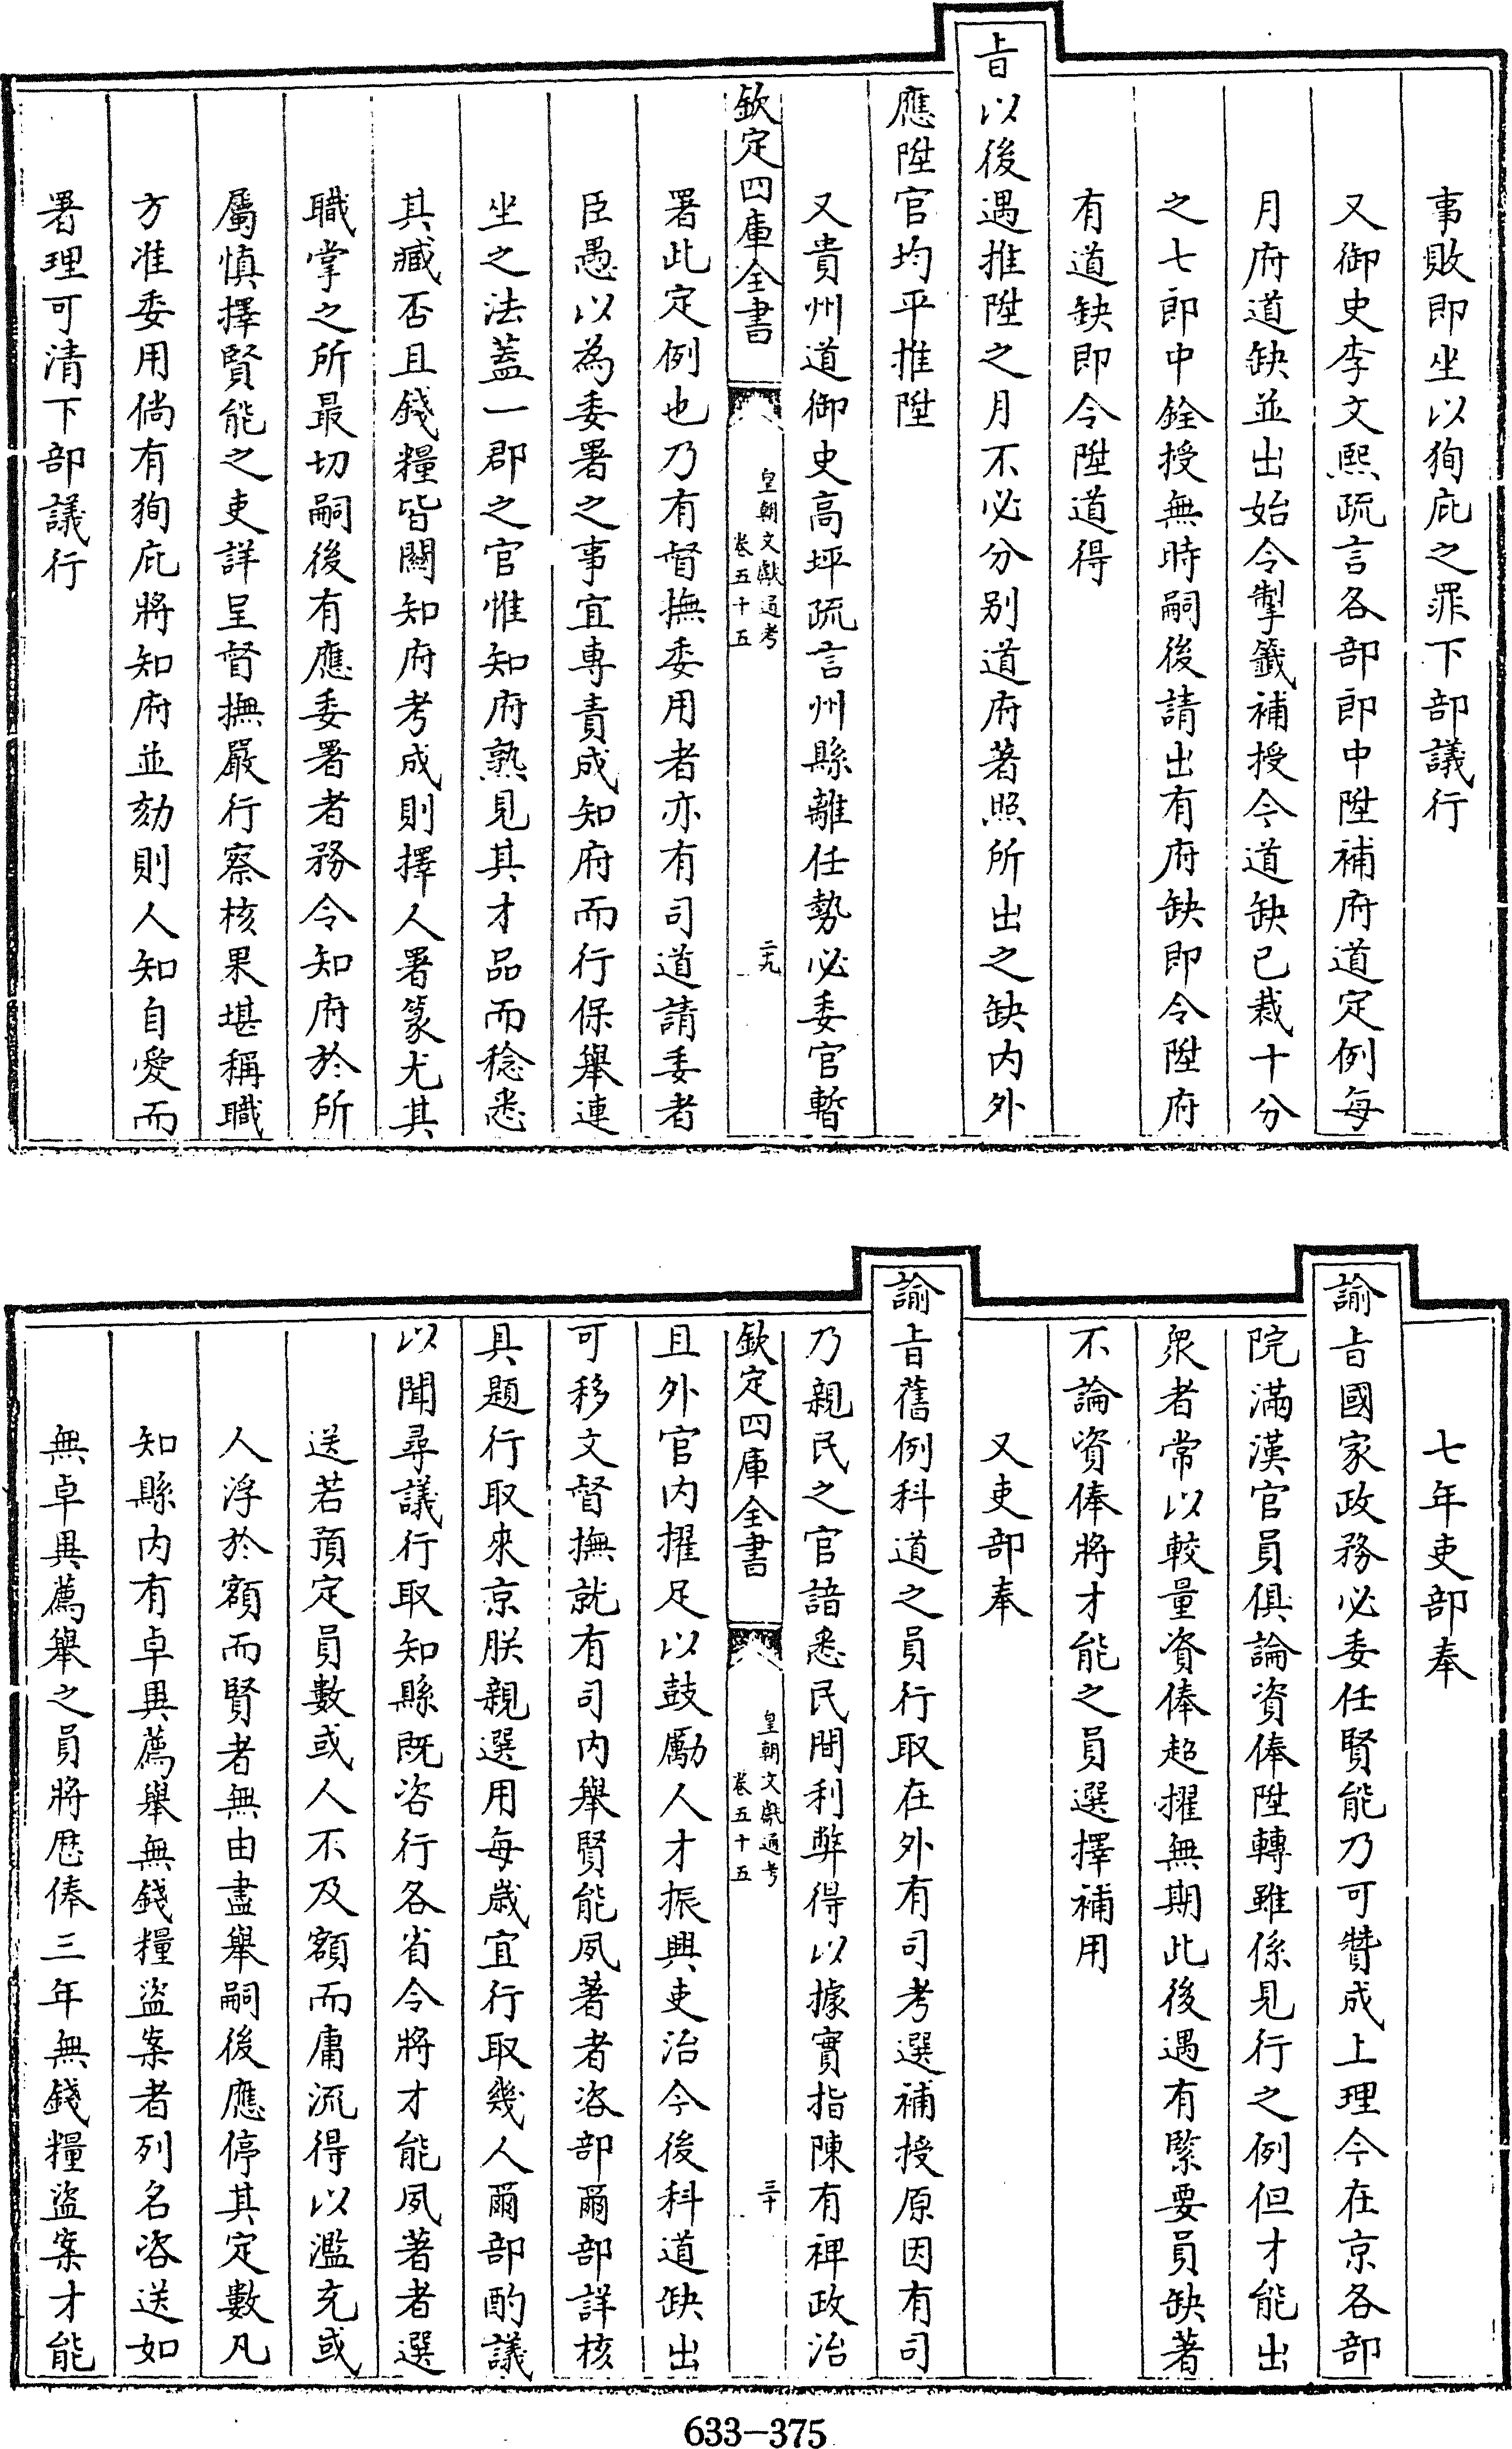 事敗即坐以狥庇之罪下部議行
又御史李文熙疏言各部郎中陞補府道定例每
月府道缺並出始令掣籤補授今道缺已裁十分
之七郎中銓授無時嗣後請出有府缺即令陞府
有道缺即令陞道得
㫖以後遇推陞之月不必分别道府著照所出之缺内外
應陞官均平推陞
又貴州道御史高坪疏言州縣離任勢必委官暫
欽定四庫全書
皇朝文獻通考
卷五十五
二九
署此定例也乃有督撫委用者亦有司道請委者
臣愚以為委署之事宜專責成知府而行保舉連
坐之法蓋一郡之官惟知府熟見其才品而稔悉
其臧否且錢糧皆闗知府考成則擇人署篆尤其
職掌之所最切嗣後有應委署者務令知府於所
屬慎擇賢能之吏詳呈督撫嚴行察核果堪稱職
方准委用倘有狥庇將知府並劾則人知自愛而
署理可清下部議行
七年吏部奉
諭㫖國家政務必委任賢能乃可贊成上理今在京各部
院滿漢官員俱論資俸陞轉雖係見行之例但才能出
衆者常以較量資俸超擢無期此後遇有緊要員缺著
不論資俸將才能之員選擇補用
又吏部奉
諭㫖舊例科道之員行取在外有司考選補授原因有司
乃親民之官諳悉民間利弊得以據實指陳有裨政治
欽定四庫全書
皇朝文獻通考
卷五十五
三十
且外官内擢足以鼓勵人才振興吏治今後科道缺出
可移文督撫就有司内舉賢能夙著者咨部爾部詳核
具題行取來京朕親選用每歲宜行取幾人爾部酌議
以聞尋議行取知縣既咨行各省令將才能夙著者選
送若預定員數或人不及額而庸流得以濫充或
人浮於額而賢者無由盡舉嗣後應停其定數凡
知縣内有卓異薦舉無錢糧盜案者列名咨送如
無卓異薦舉之員將歴俸三年無錢糧盜案才能
633-375